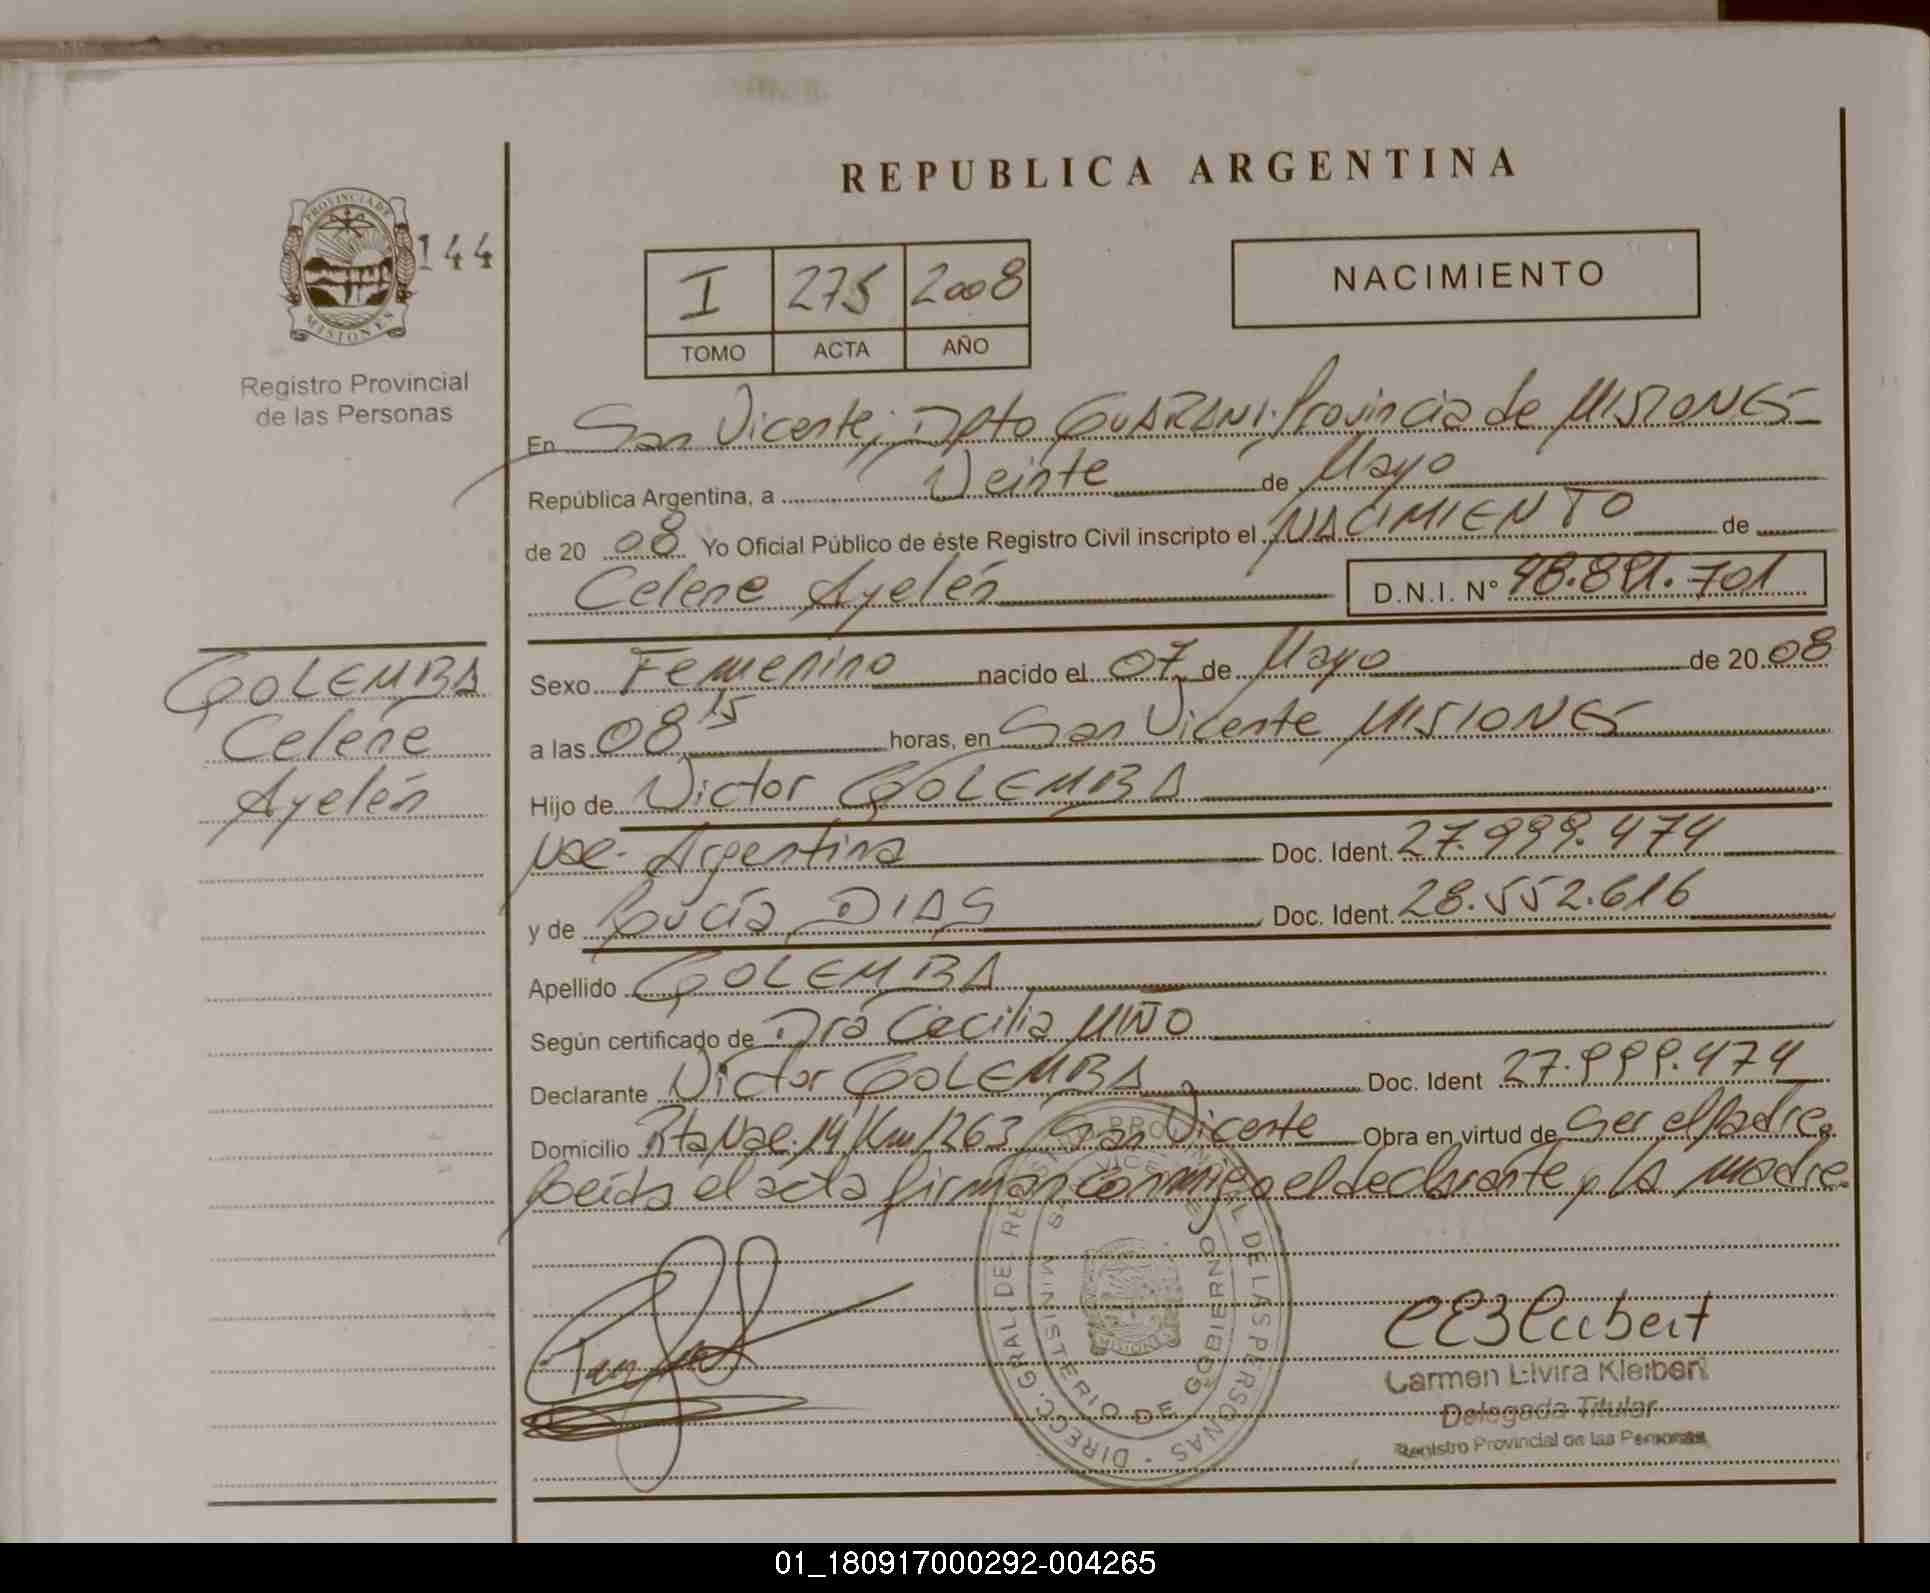 REPUBLICA ARGENTINA
PROVINCIA DE
MISIONES
144
Registro Provincial
de las Personas
I 275 2008
TOMO ACTA AÑO
NACIMIENTO
En San Vicente; Dpto GUARANI; Provincia de MISIONES
República Argentina, a Veinte de Mayo
de 20 08 Yo Oficial Público de éste Registro Civil inscripto el NACIMIENTO de
Celene Ayelén D.N.I. Nº 48.891.701
GOLEMBA
Celene
Ayelén
Sexo Femenino nacido el 07 de Mayo de 20 08
a las 08 15 horas, en San Vicente MISIONES
Hijo de Victor GOLEMBA
Nac. Argentina Doc. Ident. 27.999.474
y de Lucía DIAS Doc. Ident. 28.552.616
Apellido GOLEMBA
Según certificado de Dra Cecilia MIÑO
Declarante Victor GOLEMBA Doc. Ident 27.999.474
Domicilio Rta Nac. 14 Km 1263 San Vicente Obra en virtud de Ser el Padre.
Leída el acta firman conmigo el declarante y la madre.
DIRECC. GRAL. DEL REGISTRO PROVINCIAL DE LAS PERSONAS
MINISTERIO DE GOBIERNO
MISIONES
Carmen Elvira Kleibert
Delegada Titular
Registro Provincial de las Personas
01_180917000292-004265